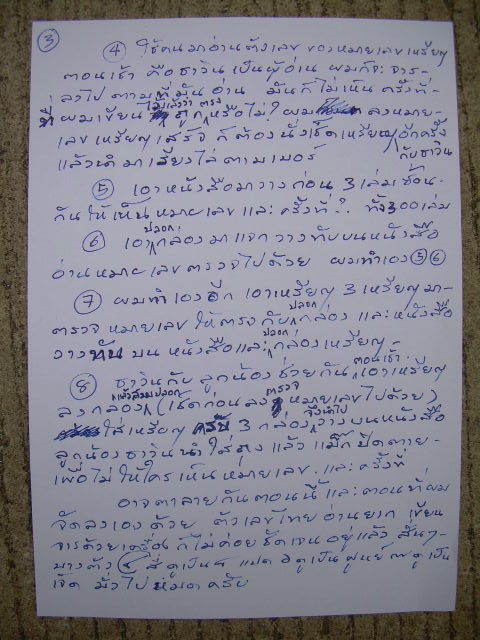 3
④ ใช้คนมาอ่านตัวเลข ของหมายเลขเหรียญ
ตอนเช้า คือซาวินเป็นผู้อ่าน ผมก็จะจาร-
ลงไป ตามที่มันอ่าน มันก็ไม่เห็นครั้งที่-
ที่ ผมเขียน ไม่แล้วว่า ตรง ถูกหรือไม่? ผม ลงหมาย-
เลข เหรียญ เสร็จ ก็ต้องนั่งเช็ดเหรียญ อีกครั้ง
แล้วนำมาเรียงไล่ตามเบอร์ กับซาวิน
⑤ เอาหนังสือมาวางก่อน 3 เล่ม ซ้อน-
กันให้เห็นหมายเลข และ ครั้งที่..? ทั้ง 300 เล่ม
⑥ เอาปลอกกล่องมาแจกวางทับบนหนังสือ
อ่านหมายเลขตรวจไปด้วย ผมทำเอง ⑤⑥
⑦ ผมทำเองอีก เอาเหรียญ 3 เหรียญมา-
ตรวจหมายเลข ให้ตรงกับปลอกกล่อง และหนังสือ
วางทับบนหนังสือและปลอกกล่องเหรียญ-
⑧ ซาวินกับลูกน้องช่วยกันตอนเช้า เอาเหรียญ
ลงกล่องแล้วสวมปลอก (เช็คก่อนลงตรวจหมายเลขไปด้วย)
ใส่เหรียญครบ 3 กล่อง จึงนำไปวางบนหนังสือ
ลูกน้องซาวินนำใส่ถุงแล้วแม็กปิดตาย-
เพื่อไม่ให้ใครเห็นหมายเลข.และครั้งที่
อาจตาลายกันตอนนี้และตอนที่ผม
จัดลงเองด้วย ตัวเลขไทยอ่านยาก เขียน
จารด้วยเครื่องก็ไม่ค่อยชัดเจนอยู่แล้ว สั้นๆ
บางตัว ๔ สี่ ดูเป็น ๕ แปด ๘ ดูเป็นศูนย์ ๗ ดูเป็น
เจ็ด มั่วไปหมดครับ